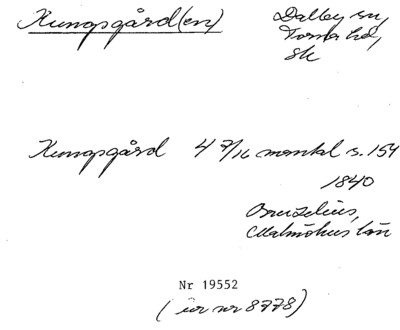 Kungsgård(en)
Dalby sn,
Torna hd,
Sk
Kungsgård 4 7/16 mantal s. 154
1840
Bruzelius,
Malmöhus län
Nr 19552
(ur nr 8778)